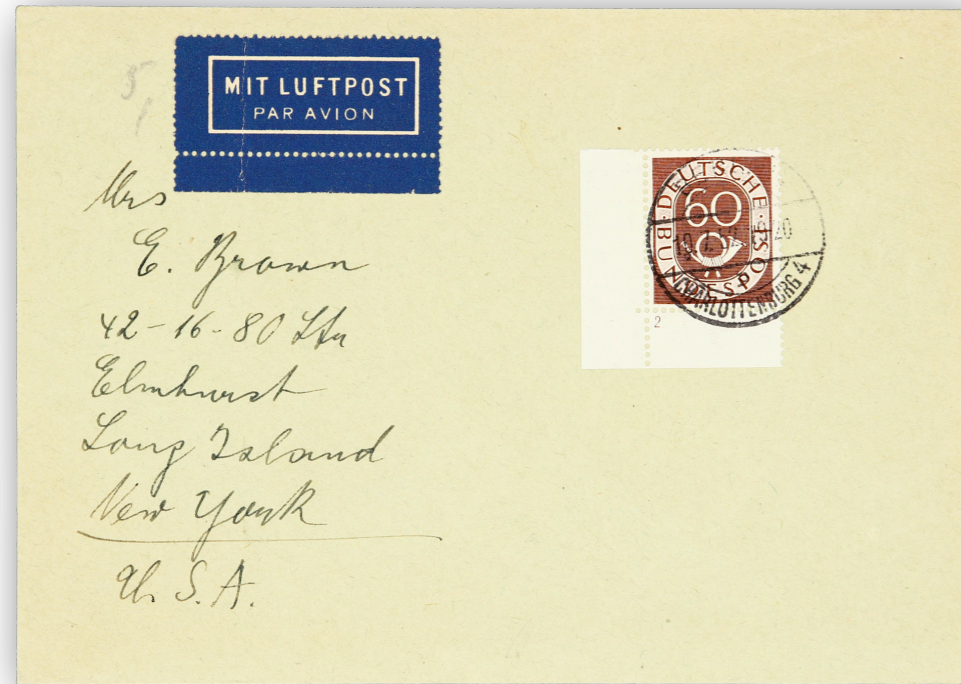 MIT LUFTPOST
PAR AVION
Mrs
E. Brown
42-16-80 Str
Elmhurst
Long Island
New York
U. S. A.
DEUTSCHE BUNDESPOST
60
2
CHARLOTTENBURG 4